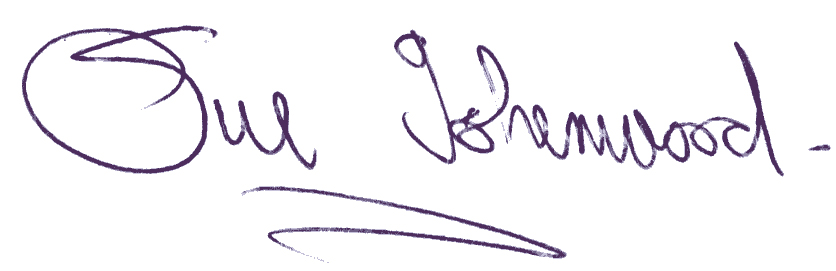 Sue Isherwood